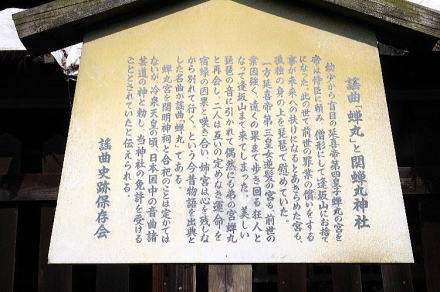 謡曲「蝉丸」と関蝉丸神社
幼少から盲目の延喜帝第四皇子蝉丸の宮を
帝は侍臣に頼み、僧形にして逢坂山にお捨て
になった。此の世で前世の罪業の償いをする
事が未来への扶けになるとあきらめた宮も、
孤独の身の上を琵琶で慰めていた。
一方延喜帝第三皇女逆髪の宮も、前世の
業因強く、遠くの果まで歩き回る狂人と
なって逢坂山まで来てしまった。美しい
琵琶の音に引かれて偶然にも弟の宮蝉丸
と再会し、二人は互いの定めなき運命を
宿縁の因果と嘆き合い、姉宮は心を残しな
がら別れて行く、という今昔物語を出典と
した名曲が謡曲「蝉丸」である。
蝉丸宮を関明神祠と合祀のことは定かでは
ないが、冷泉天皇の頃、日本国中の音曲諸
芸道の神と勅し、当神社の免許を受ける
こととされていたと伝えられる。
謡曲史跡保存会